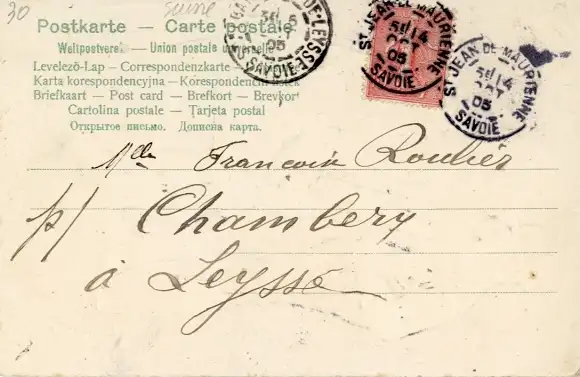 30
Postkarte — Carte postale
Weltpostverein — Union postale universelle
Levelező-Lap — Correspondenzkarte
Karta korespondencyjna — Korespondenční lístek
Briefkaart — Post card — Brefkort — Brevkort
Cartolina postale — Tarjeta postal
Открытое письмо. Дописна карта.
DE-LEYSSE
05
SAVOIE
ST JEAN DE MAURIENNE
5E/14
OCT
05
SAVOIE
ST JEAN DE MAURIENNE
5E/14
OCT
05
SAVOIE
Mlle Francoise Roulier
p/ Chambery
à Leysse